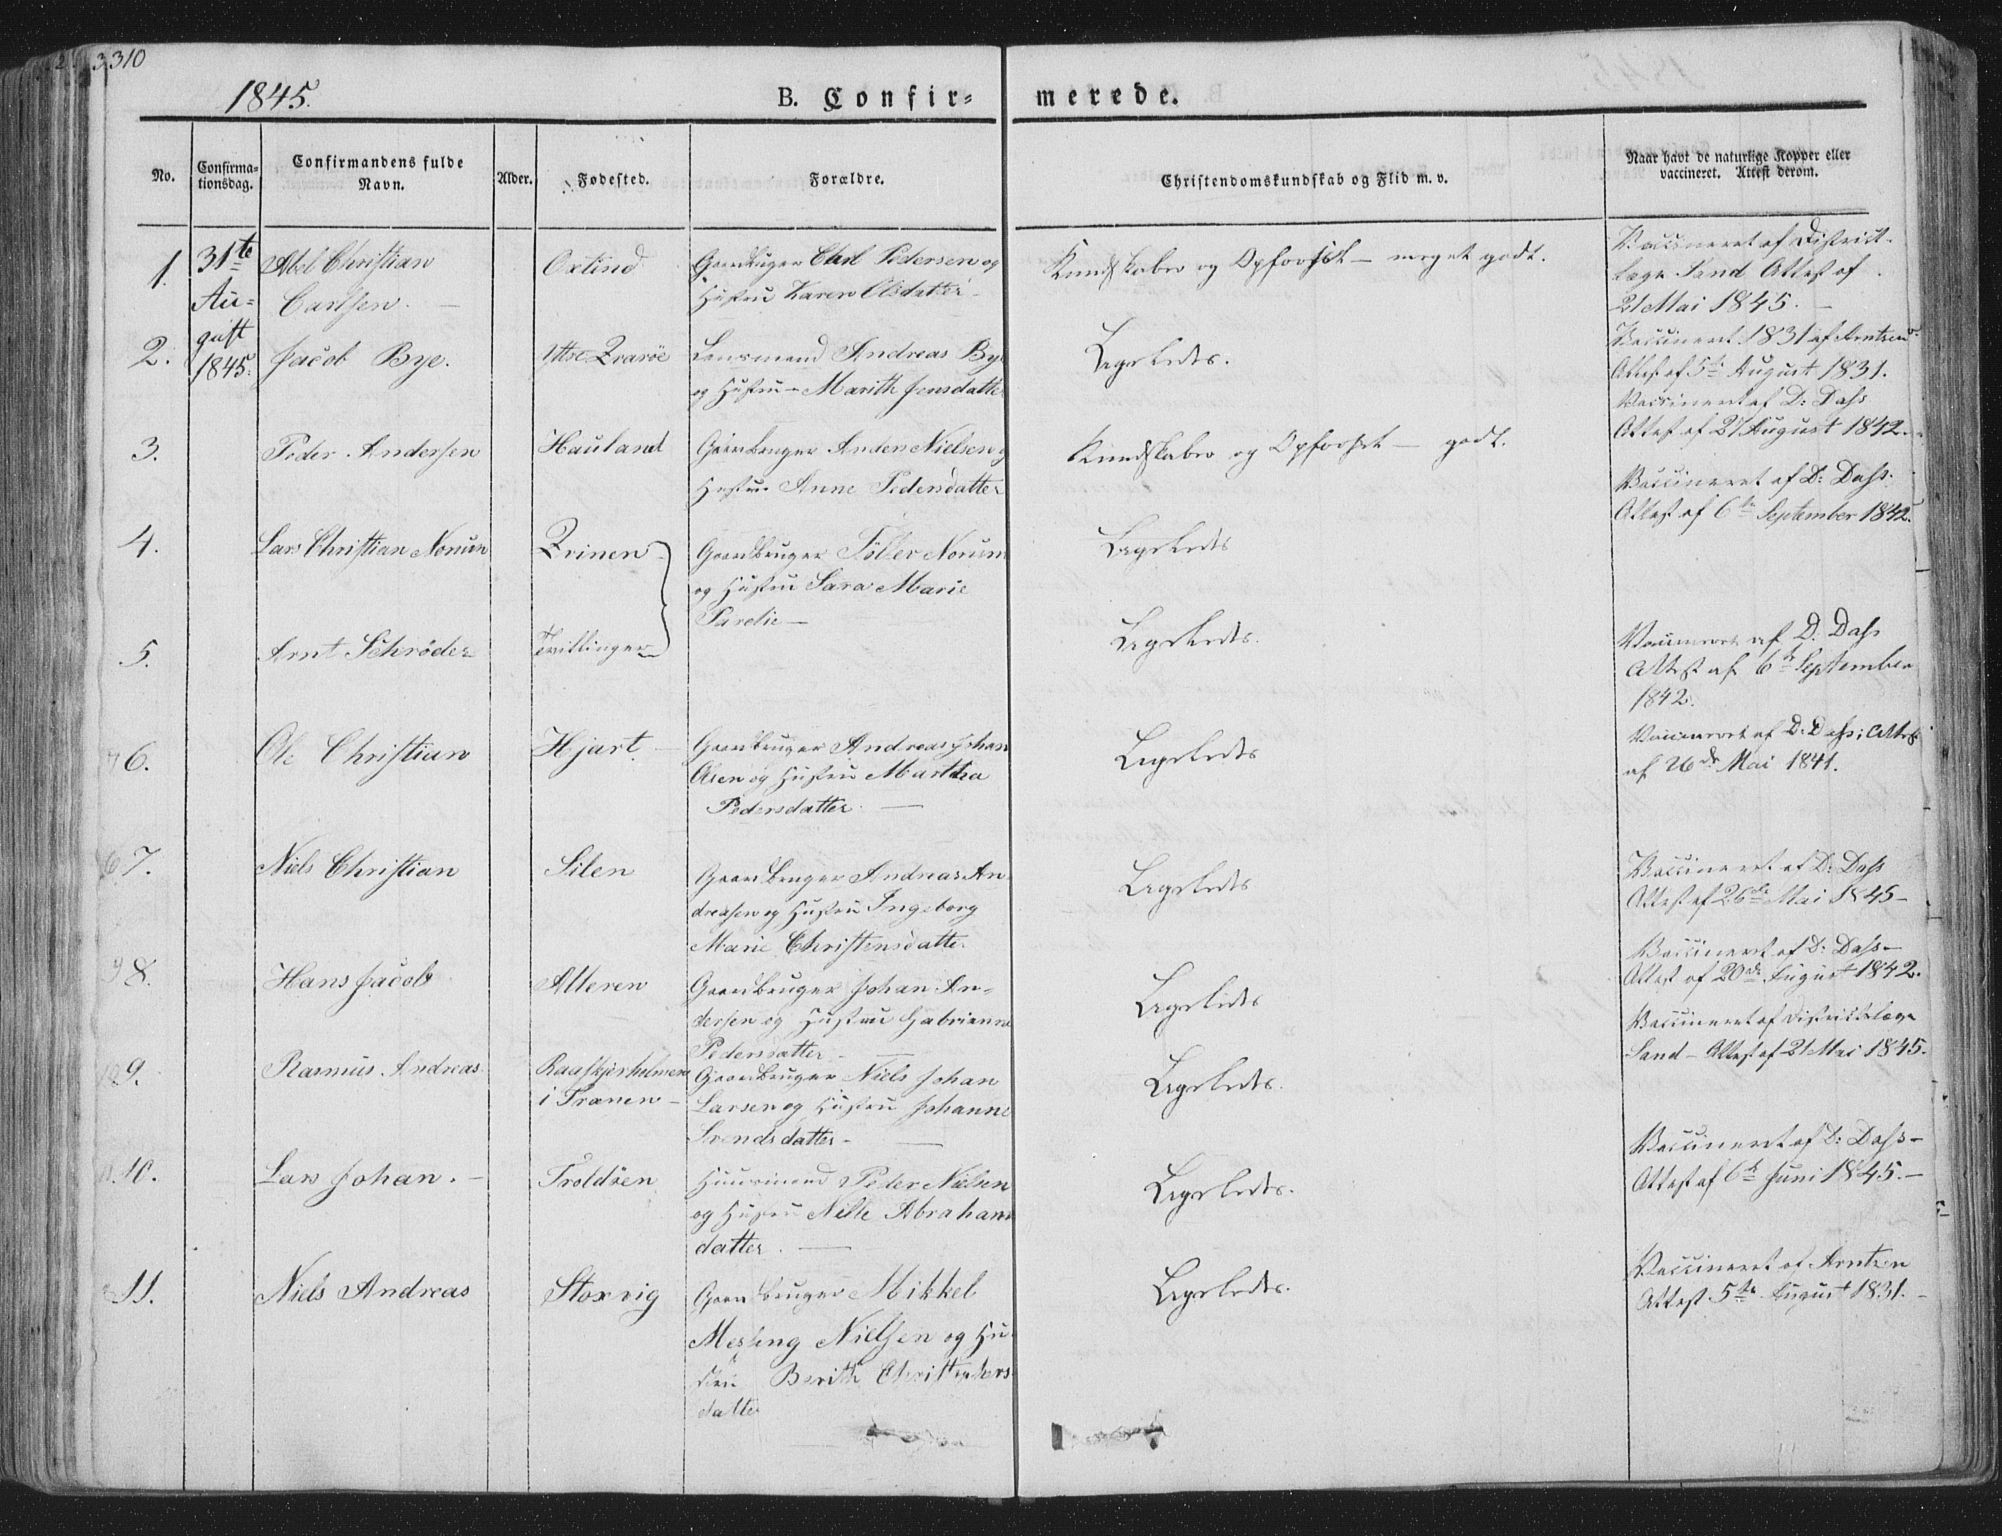 310
1845.
B. Confir-
merede.
No.
Confirma-
tionsdag.
Confirmandens fulde
Navn.
Alder.
Fødested.
Forældre.
Christendomskundskab og Flid m. v.
Naar havt de naturlige Kopper eller
vaccineret. Attest derom.
1.
31te
Au-
gust
1845.
Abel Christian
Carlsen.
Oxtind
Gaardbruger Carl Pedersen og
Hustru Karen Olsdatter
Kundskaber og Opførsel - meget godt.
Vaccineret af District-
læge Sand Attest af
21 Mai 1845.
2.
Jacob Bye.
Lensmand Andreas Bye
og Hustru Marith Jensdatter
Ligeledes.
Vaccineret 1831 af Arntzen
Attest af 5te August 1831.
3.
Peder Andersen
Hauland
Gaardbruger Anders Nielsen og
Hustru Anne Pedersdatter
Kundskaber og Opførsel - godt.
Vaccineret af D: Dass
Attest af 27 August 1842.
4.
Lars Christian Norum
Zvinen
Gaardbruger Norum
og Hustru Sara Marie
Parelie
Ligeledes
Vaccineret af D: Dass.
Attest af 6te September 1842.
5.
Arnt Schrøder
Tvillinger
Ligeledes.
Vaccineret af D. Dass
Attest af 6te September
1842.
6.
Ole Christian
Hjart
Gaardbruger Andreas Johan
Olsen og Hustru Martha
Pedersdatter.
Ligeledes
Vaccineret af D. Dass; Attest
af 26de Mai 1841.
7.
Niels Christian
Silen
Gaardbruger Andreas An-
dreasen og Hustru Ingeborg
Marie Christensdatter.
Ligeledes
Vaccineret af D: Dass
Attest af 26de Mai 1845
8.
Hans Jacob
Alteren
Gaardbruger Johan An-
dersen og Hustru Gabrianna
Pedersdatter
Ligeledes
Vaccineret af D: Dass
Attest af 20de August 1842.
9.
Rasmus Andreas
i Trænen
Gaardbruger Niels Johan
Larsen og Hustru Johanne
Svendsdatter
Ligeledes.
Vaccineret af Districtslæge
Sand - Attest af 21 Mai 1845.
10.
Lars Johan.
Troldøen
Huusmand Peder Nielsen
og Hustru Nille Abraham-
datter.
Ligeledes.
Vaccineret af D: Dass
Attest af 6te Juni 1845.
11.
Niels Andreas
Stoxvig
Gaardbruger Mikkel
Messing Nielsen og Hu-
stru Berith Christophers-
datter
Ligeledes.
Vaccineret af Arntzen
Attest 5te August 1831.